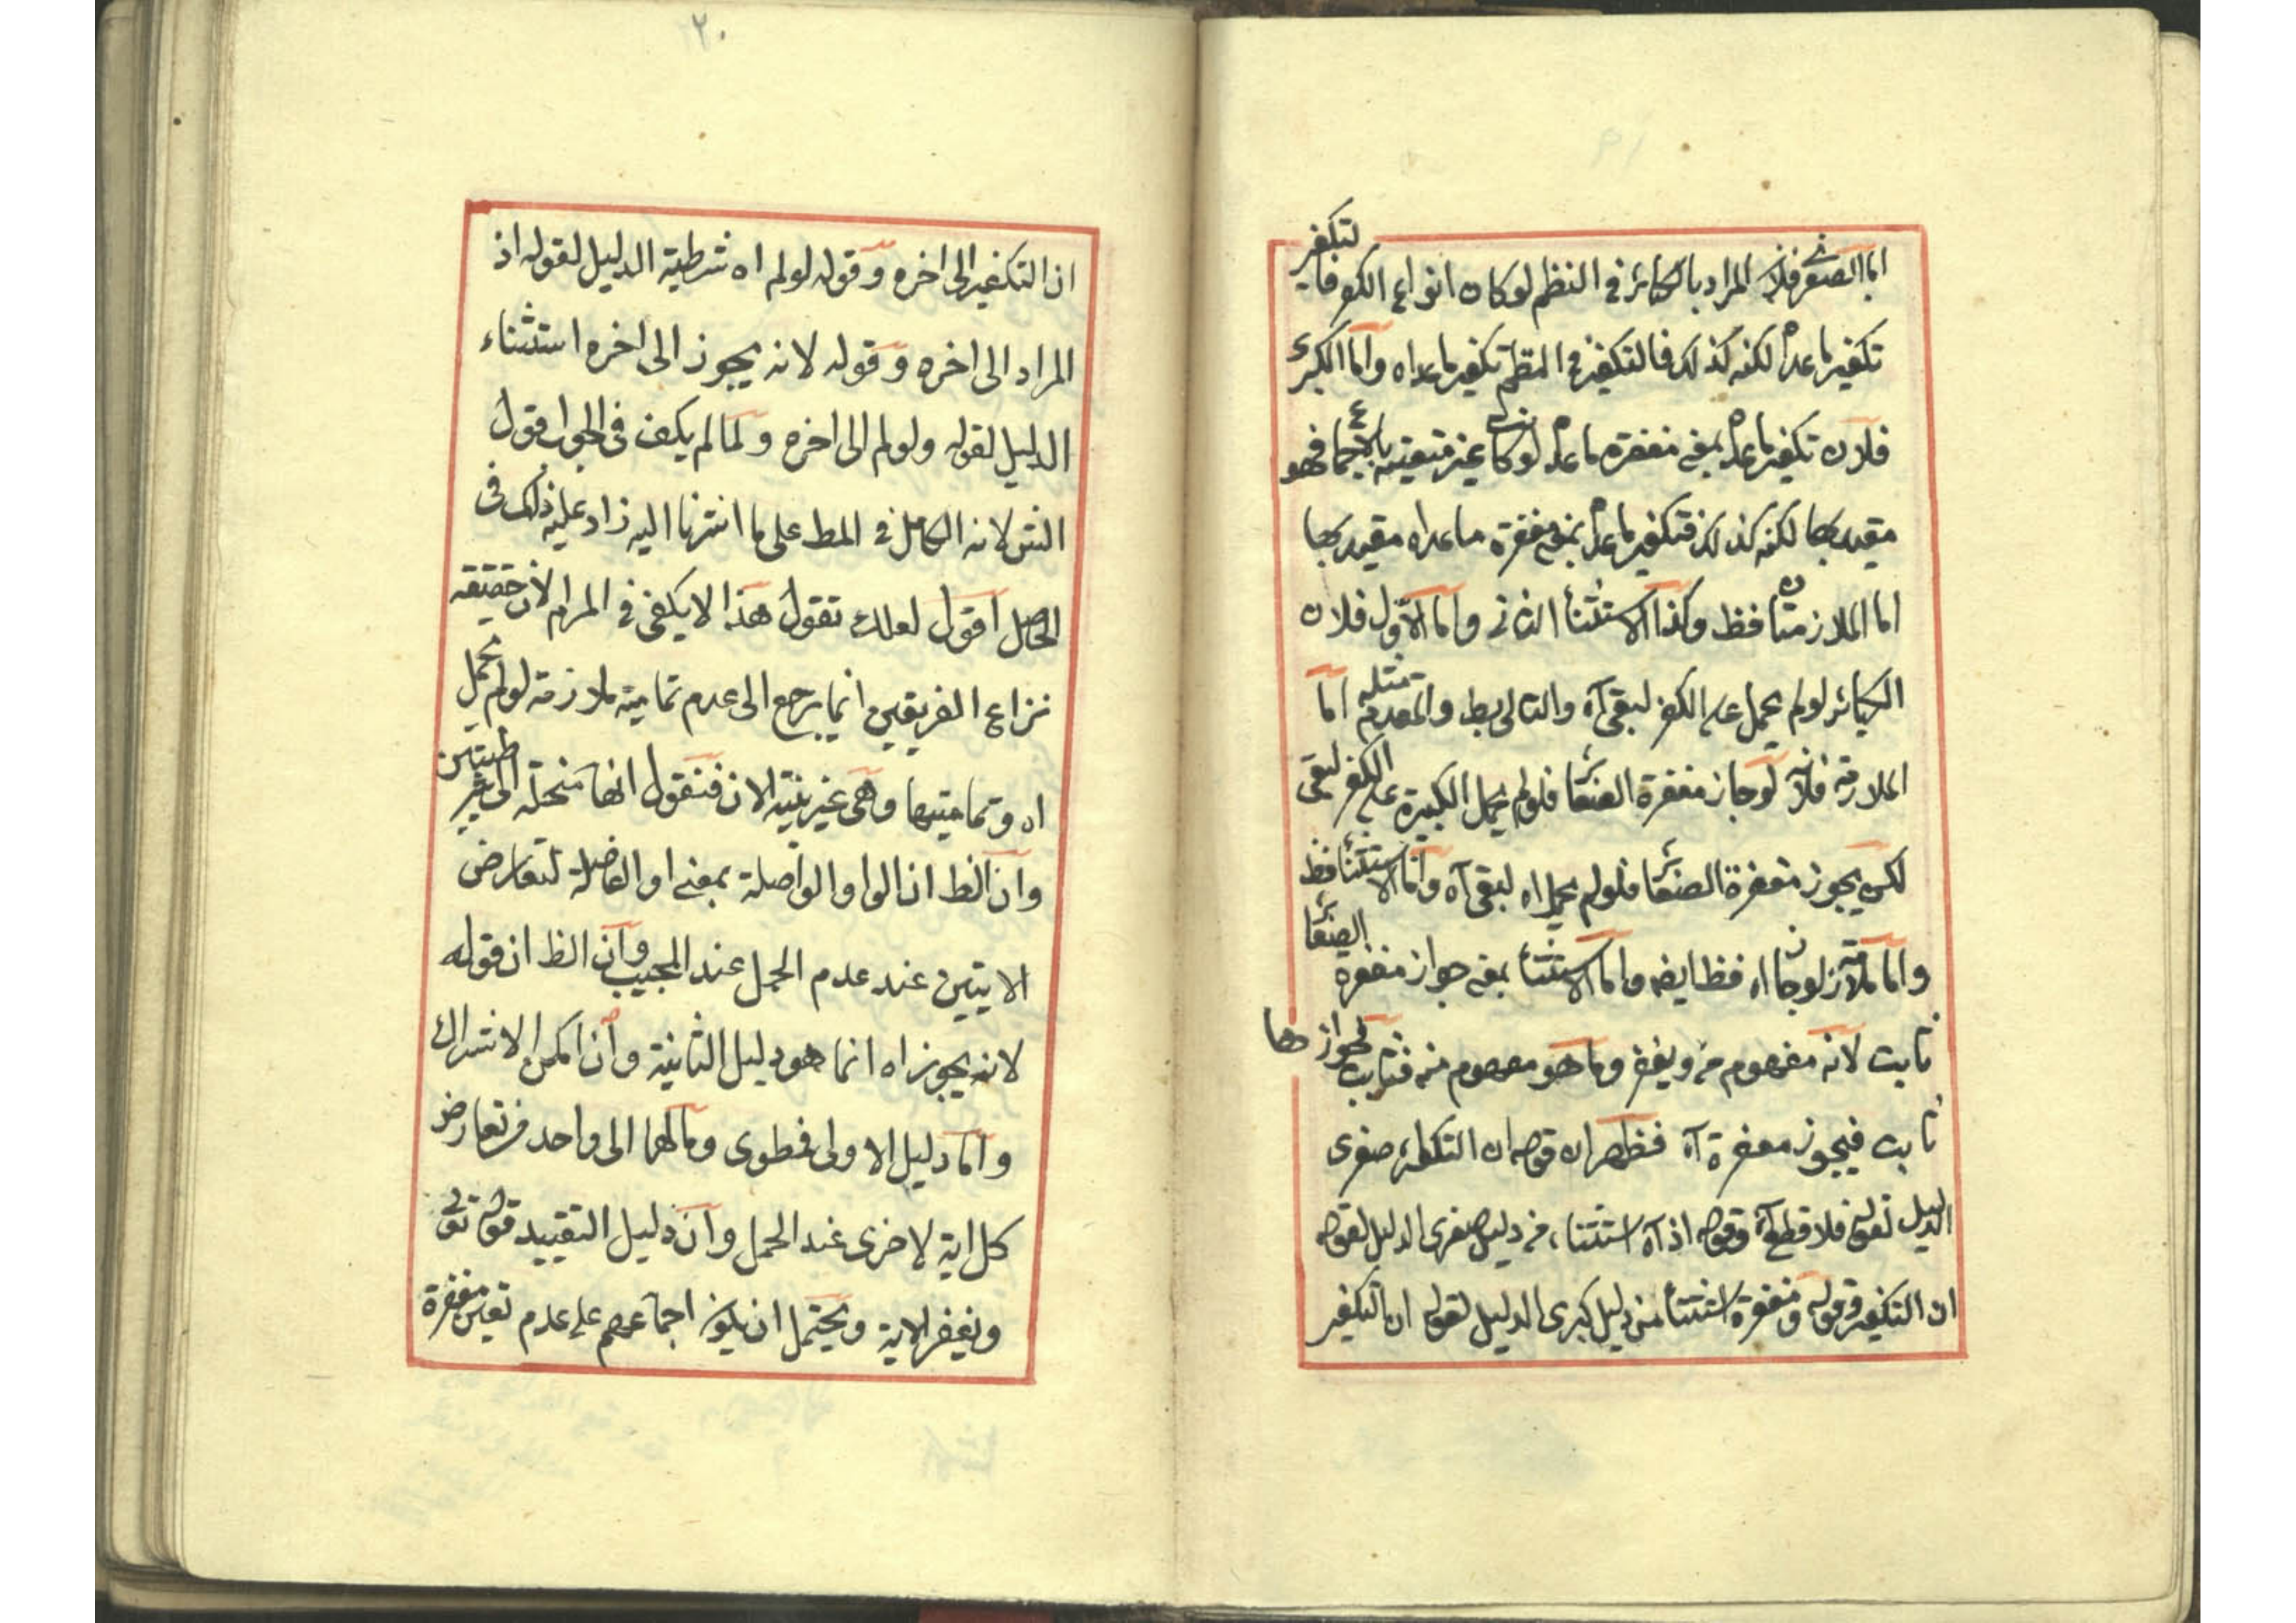 اما الصغرى فلان المراد بالكبائر في النظم لو كان انواع الكفر فالتكفير
تكفير ما عداه لكنه كذلك فالتكفير في النظم تكفير ما عداه واما الكبرى
فلان تكفير ما عداه بمعنى مغفرة ما عداه لو كانت غير متعينة بالاجماع فهو
مقيد بها لكنه كذلك فتكفير ما عداه بمعنى مغفرة ما عداه مقيد بها
اما الملازمتان فظ وكذا الاستثناء الثاني واما الاول فلان
الكبائر لو لم يحمل على الكفر لبقى آه والتالى بط والمقدم مثله اما
الملازمة فلانه لو جاز مغفرة الصغائر فلو لم يحمل الكبيرة على الكفر لبقى
لكن يجوز مغفرة الصغائر فلو لم يحمل اه لبقى آه واما الاستثناء فظ
واما ملازمة لو جاز اه فظ ايضا واما الاستثناء بمعنى جواز مغفرة الصغائر
ثابت لانه مفهوم من ويغفر وما هو مفهوم منه فثابت فجوازها
ثابت فيجوز مغفرة آه فظهر ان قوله ان التكفير صغرى
الدليل لقوله فلا قطع آه وقوله اذ آه استثناء من دليل صغرى الدليل لقوله
ان التكفير وقوله ومغفرة استثناء من دليل كبرى الدليل لقوله ان التكفير
٢٠
ان التكفير الى اخره وقوله لو لم اه شرطية الدليل لقوله اذ
المراد الى اخره وقوله لانه يجوز الى اخره استثناء
الدليل لقوله ولو لم الى اخره ولما لم يكف في الجواب قول
الش لانه الكامل في المط على ما اشرنا اليه زاد عليه ذلك في
الحاصل اقول لعلك تقول هذا لا يكفى في المرام لان حقيقة
نزاع الفريقين انما يرجع الى عدم تمامية ملازمة لو لم يحمل
اه وتماميتها وهى غير بينة الان فنقول انها منحلة الى شرطيتين
وان الظ ان الواو الواصلة بمعنى او الفاصلة لتعارض
الايتين عند عدم الحمل عند المجيب وان الظ ان قوله
لانه يجوز اه انما هو دليل الثانية وان امكن الاشتراك
واما دليل الاولى فمطوى ومالهما الى واحد من تعارض
كل اية لاخرى عند الحمل وان دليل التقييد قوله تعالى
ويغفر الاية ويحتمل ان يكون اجماعهم على عدم تعين مغفرة